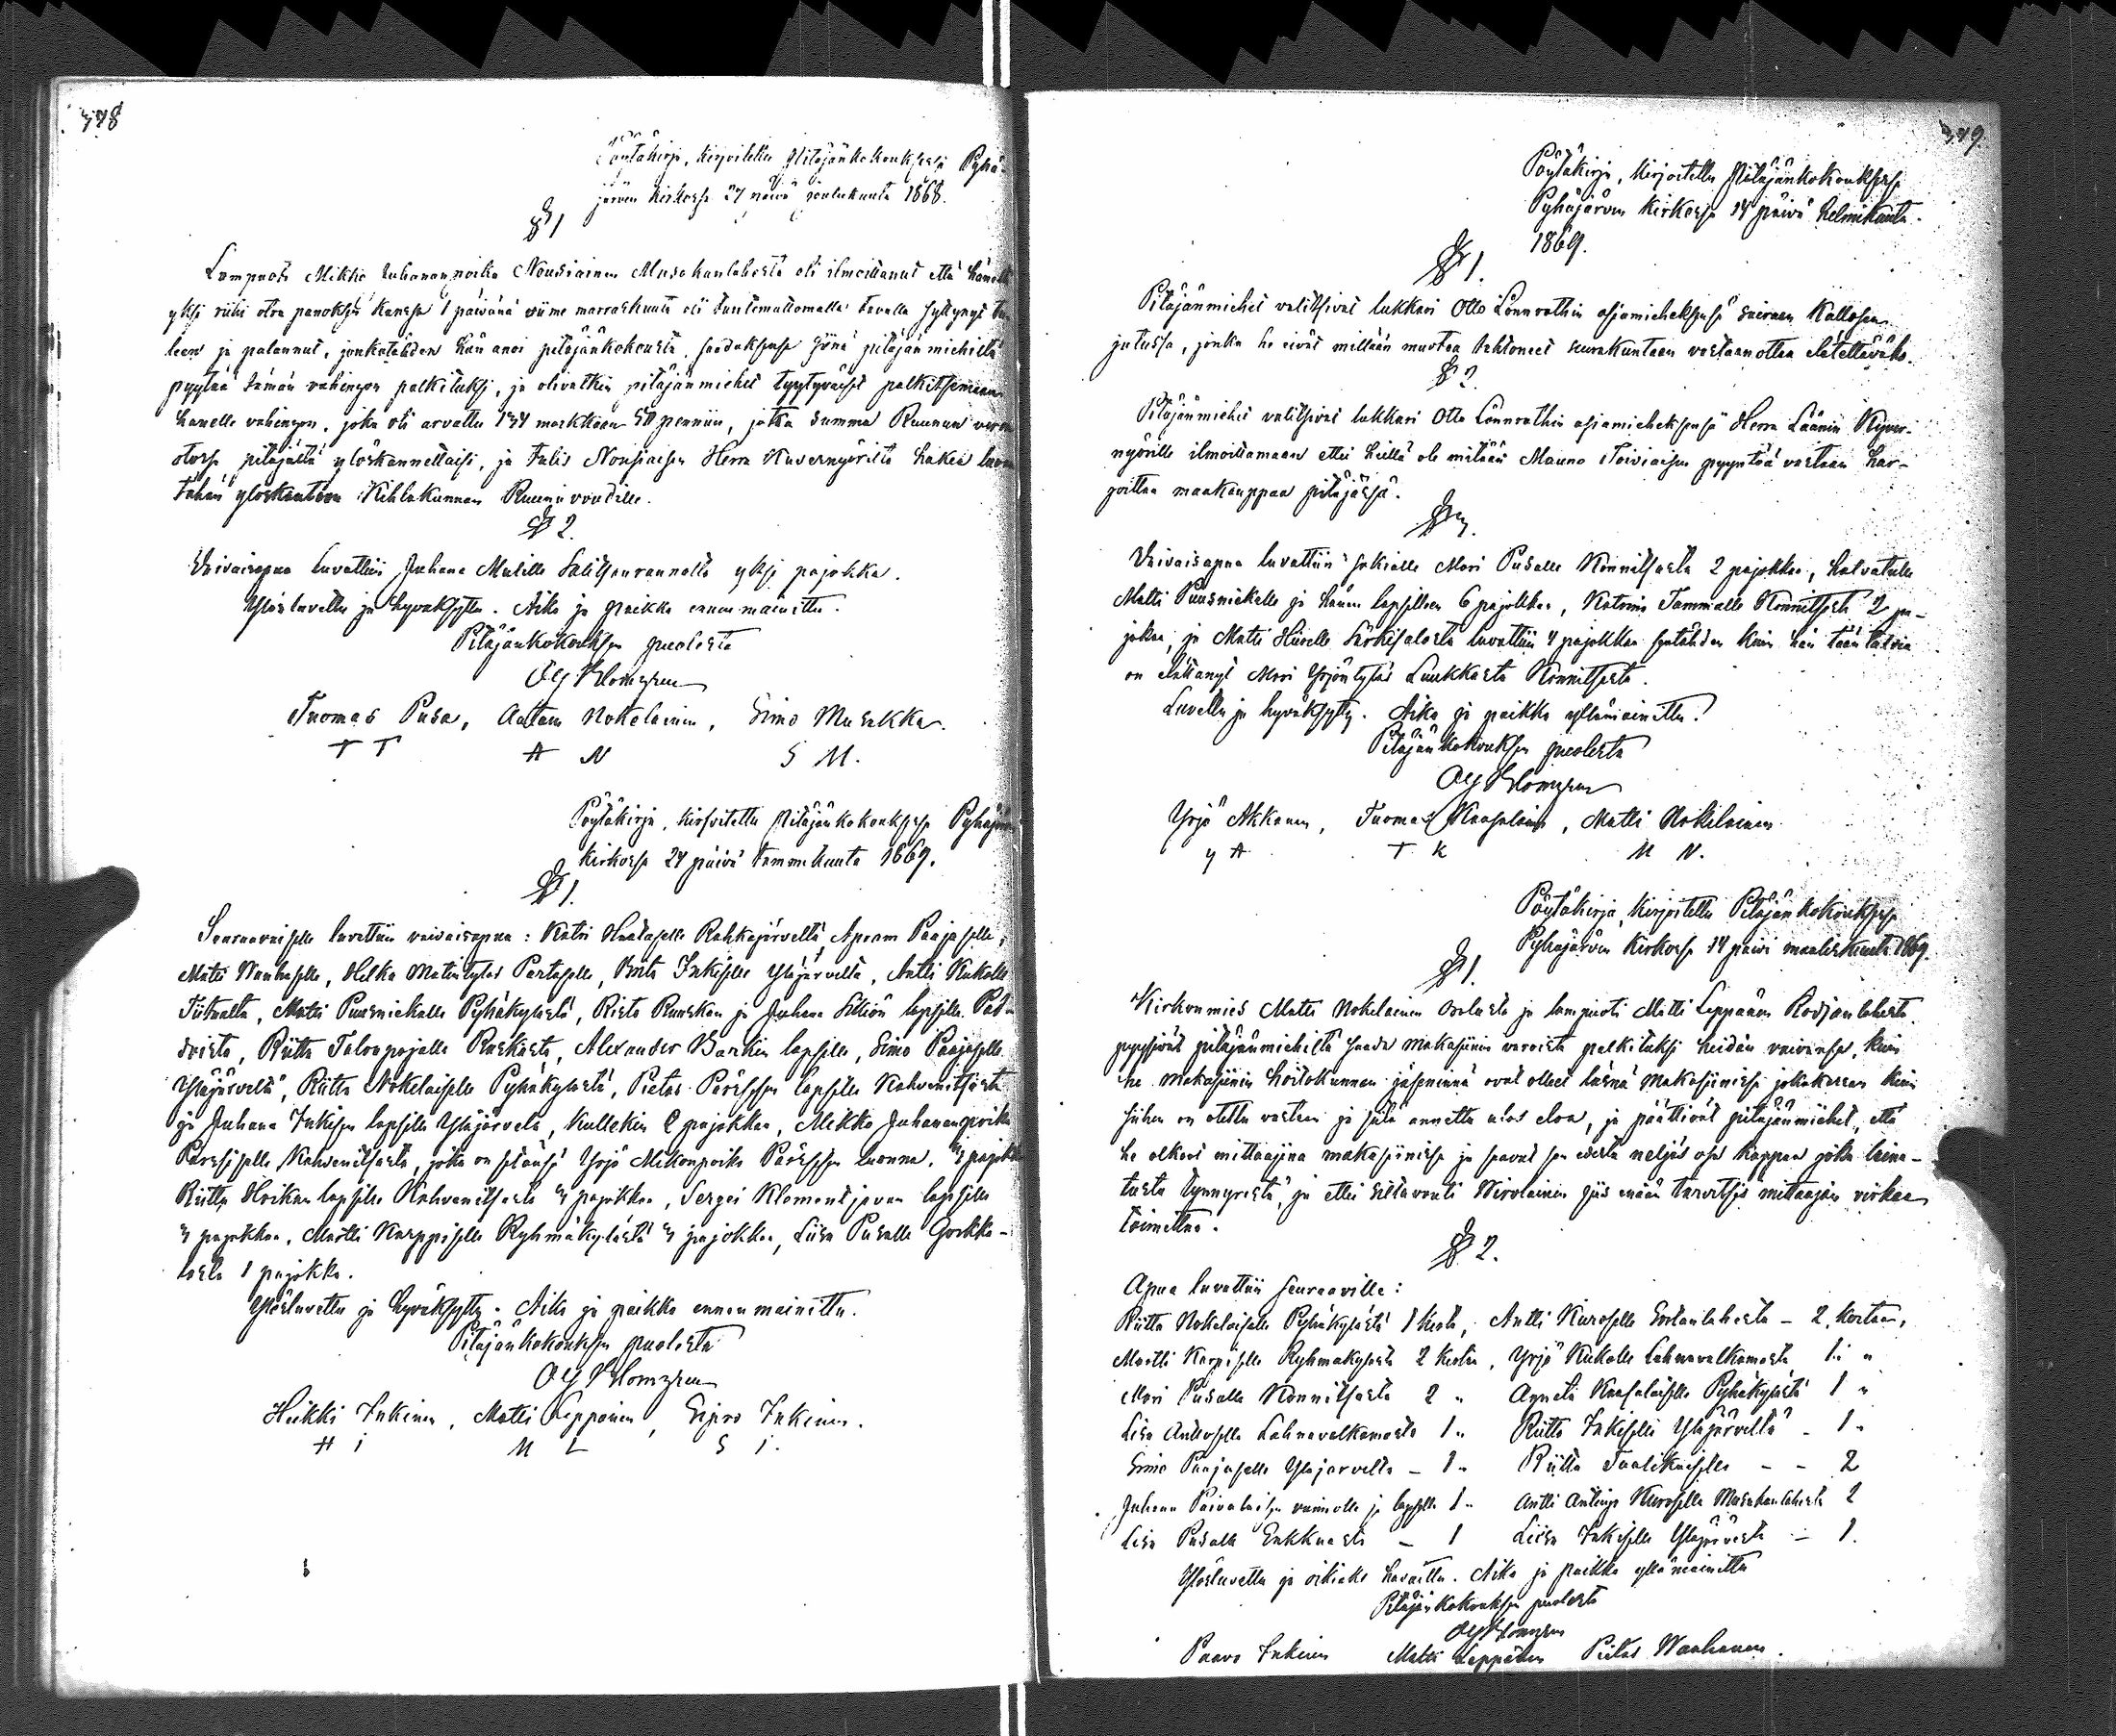 378
Pöytäkirja, kirjoitettu Pitäjänkokouksessa Pyhä-
järven kirkossa 27 päivä joulukuuta 1868.
§ 1
Lampuoti Mikko Juhananpoika Nousiainen Musakanlahesta oli ilmoittanut että häneltä
yksi riihi otra panoksen kanssa 1 päivänä viime marraskuuta oli tuntemattomalla tavalla syttynyt tu-
leen ja palannut, jonkatähden hän anoi pitäjänkokousta saadaksensa siinä pitäjän miehiltä
pyytää tämän vahingon palkituksi, ja olivatkin pitäjänmiehet tyytyväiset palkitsemaan
hänelle vahingon, joka oli arvattu 134 markkaan 50 penniin, jotka summa Ruunun veron
otossa pitäjältä ylöskannettaisi, ja tulis Nousiaisen Herra Kuvernyöriltä hakea luvan
tähän ylöskantoon Kihlakunnan Ruununvoudille.
§ 2.
Vaivaisapua luvattiin Juhana Mulille Salitsanrannalta yksi pajokka.
Ylösluvettu ja hyväksytty. Aika ja paikka ennen mainittu.
Pitäjänkokouksen puolesta
Alf Blomgren
Tuomas Pusa, Aatam Nokelainen, Simo Musakka.
T T A N S M.
Pöytäkirja, kirjoitettu Pitäjänkokouksessa Pyhäjärven
kirkossa 24 päivä tammikuuta 1869.
§ 1.
Seuraavaiselle luvattiin vaivaisapua: Katri Hautaselle Rahkajärveltä, Apram Paajaselle,
Matti Wanhaselle, Helka Matintytär Partaselle, Anta Inkiselle Yläjärveltä, Antti Kukolle
Tiitualta, Matti Puusniekalle Pyhäkylästä, Risto Ruuskan ja Juhana Sillön lapsille
Riitta Talonpojalle Raskasta, Alexander Barkin lapsille, Simo Paajaselle
Yläjärveltä, Riitta Nokelaiselle Pyhäkylästä, Pietar Pärssisen lapsille Kahvenitsasta
ja Juhana Inkisen lapsille Yläjärveltä, kullekin 2 pajokkaa, Mikko Juhananpoika
Pärssiselle Kahvenitsasta, joka on setänsä Yrjö Mikonpoika Pärssisen luonna, 3 pajokkaa
Riitta Hoikan lapsille Kahvenitsasta 3 pajokkaa, Sergei Klementjevan lapsille
3 pajokkaa, Martti Karppiselle Ryhmäkylästä 3 pajokkaa, Liisa Pusalle Gorkka-
lasta 1 pajokka.
Ylösluvettu ja hyväksytty. Aika ja paikka ennen mainittu.
Pitäjänkokouksen puolesta
Alf Blomgren
Heikki Inkinen, Matti Leppänen, Sipro Inkinen.
H I M L S I.
379
Pöytäkirja, kirjoitettu Pitäjänkokouksessa
Pyhäjärven kirkossa 14 päivä helmikuuta
1869.
§ 1.
Pitäjänmiehet valitsivat lukkari Otto Lönnrothin asiamieheksensä sairaan Kallosen
jutussa, jonka he eivät millään muotoa tahtoneet seurakuntaan vastaanottaa elätettäväksi.
§ 2.
Pitäjänmiehet valitsivat lukkari Otto Lönnrothin asiamieheksensä Herra Läänin Kuver-
nyörille ilmoittamaan ettei heillä ole mitään Mauno Toiviaisen pyyntöä vastaan har-
joittaa maakauppaa pitäjässä.
§ 3.
Vaivaisapua luvattiin sokialle Mari Pusalle Konnitsasta 2 pajokkaa, halvatulle
Matti Puusniekalle ja hänen lapsilleen 6 pajokkaa, Katriina Tammialle Konnitsasta 2 pa-
jokkaa, ja Matti Hiirelle Särkisalosta luvattiin 4 pajokkaa sentähden kuin hän tään talvia
on elättänyt Mari Yrjöntytär Luukkasta Konnitsasta.
Luvettu ja hyväksytty. Aika ja paikka yllämainittu.
Pitäjänkokouksen puolesta
Alf Blomgren
Yrjö Akkanen, Tuomas Kaasalainen, Matti Nokelainen
Y A T K M N.
Pöytäkirja, kirjoitettu Pitäjänkokouksessa
Pyhäjärven kirkossa 14 päivä maaliskuuta 1869.
§ 1.
Kirkonmies Matti Nokelainen ja lampuoti Matti Leppänen Rodjanlahesta
pyysivät pitäjänmiehiltä saada makasiinin varoista palkituksi heidän vaivansa, kuin
he makasiinin hoitokunnan jäseninnä ovat olleet läsnä makasiinissa jokakerran kuin
siihen on otettu vastaan ja siitä annettu ulos eloa, ja päättivät pitäjänmiehet, että
he olkoot mittaajina makasiinissa ja saavat sen edestä neljäs osa kappaa joka laina-
tusta tynnyrestä, ja ettei siltavouti Wirolainen siis enään tarvitse mittaajan virkaa
toimittaa.
§ 2.
Apua luvattiin seuraaville:
Riitta Nokelaiselle Pyhäkylästä 1 kerta, Antti Kuroselle Sortanlahesta – 2 kertaa,
Martti Karpiselle Ryhmäkylästä 2 kertaa, Yrjö Kukolle Lahnavalkamasta 1 "
Mari Pusalle Konnitsasta 2 " Agneta Kaasalaiselle Pyhäkylästä 1 "
Lisa Anterselle Lahnavalkamasta 1 " Riitta Inkiselle Yläjärveltä – 1 "
Simo Paajaselle Yläjärveltä – 1 " Riitta Tuulikaiselle – – 2
Juhana Päivaläisen vaimolle ja lapselle 1 " Antti Antinp. Kuroselle Musakanlahesta 2
Lisa Pusalle Enkkuasta – 1 Liisa Inkiselle Yläjärvestä – 1.
Ylösluvettu ja oikiaks havaittu. Aika ja paikka yllämainittu
Pitäjänkokouksen puolesta
Alf Blomgren
Paavo Inkinen Matti Leppänen Pietar Wanhanen.